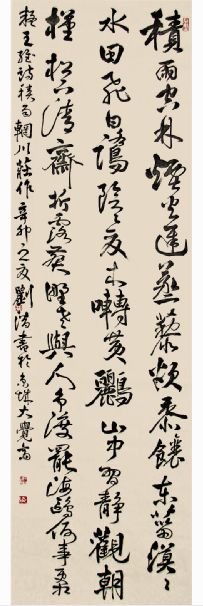 積雨空林煙火遲蒸藜炊黍饟东菑漠〻
水田飛白鷺陰〻夏木囀黃鸝山中習靜觀朝
槿松下清齋折露葵野老與人爭席罷海鷗何事更相
疑王維詩積雨輞川莊作辛卯之夏劉濤書於大覺齋